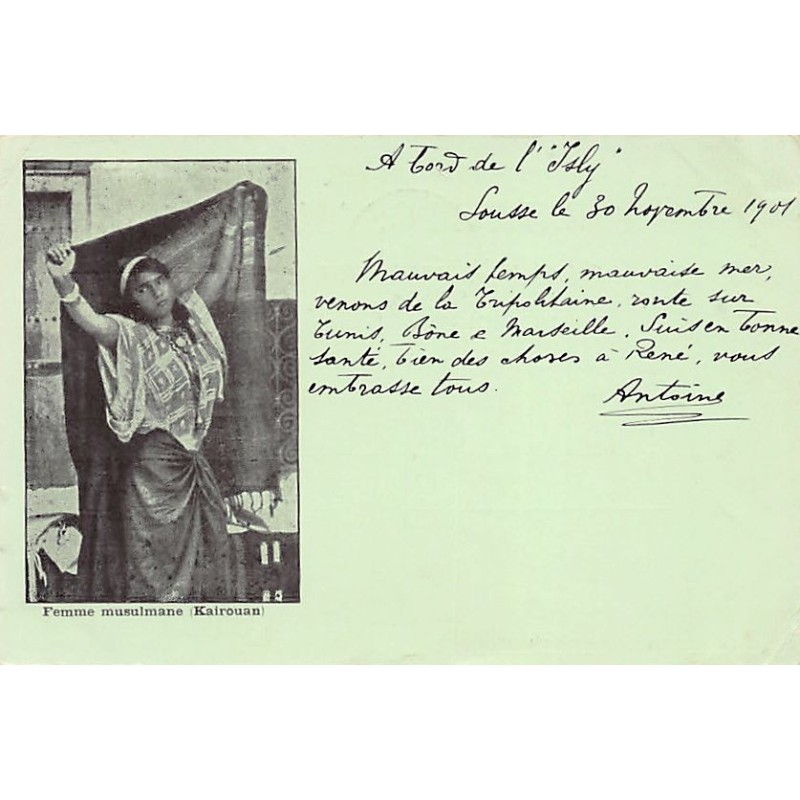 A bord de l' "Isly"
Sousse le 30 Novembre 1901
Mauvais temps, mauvaise mer,
venons de la Tripolitaine, route sur
Tunis, Bône e Marseille. Suis en bonne
santé, bien des choses à René, vous
embrasse tous.
Antoine
Femme musulmane (Kairouan)